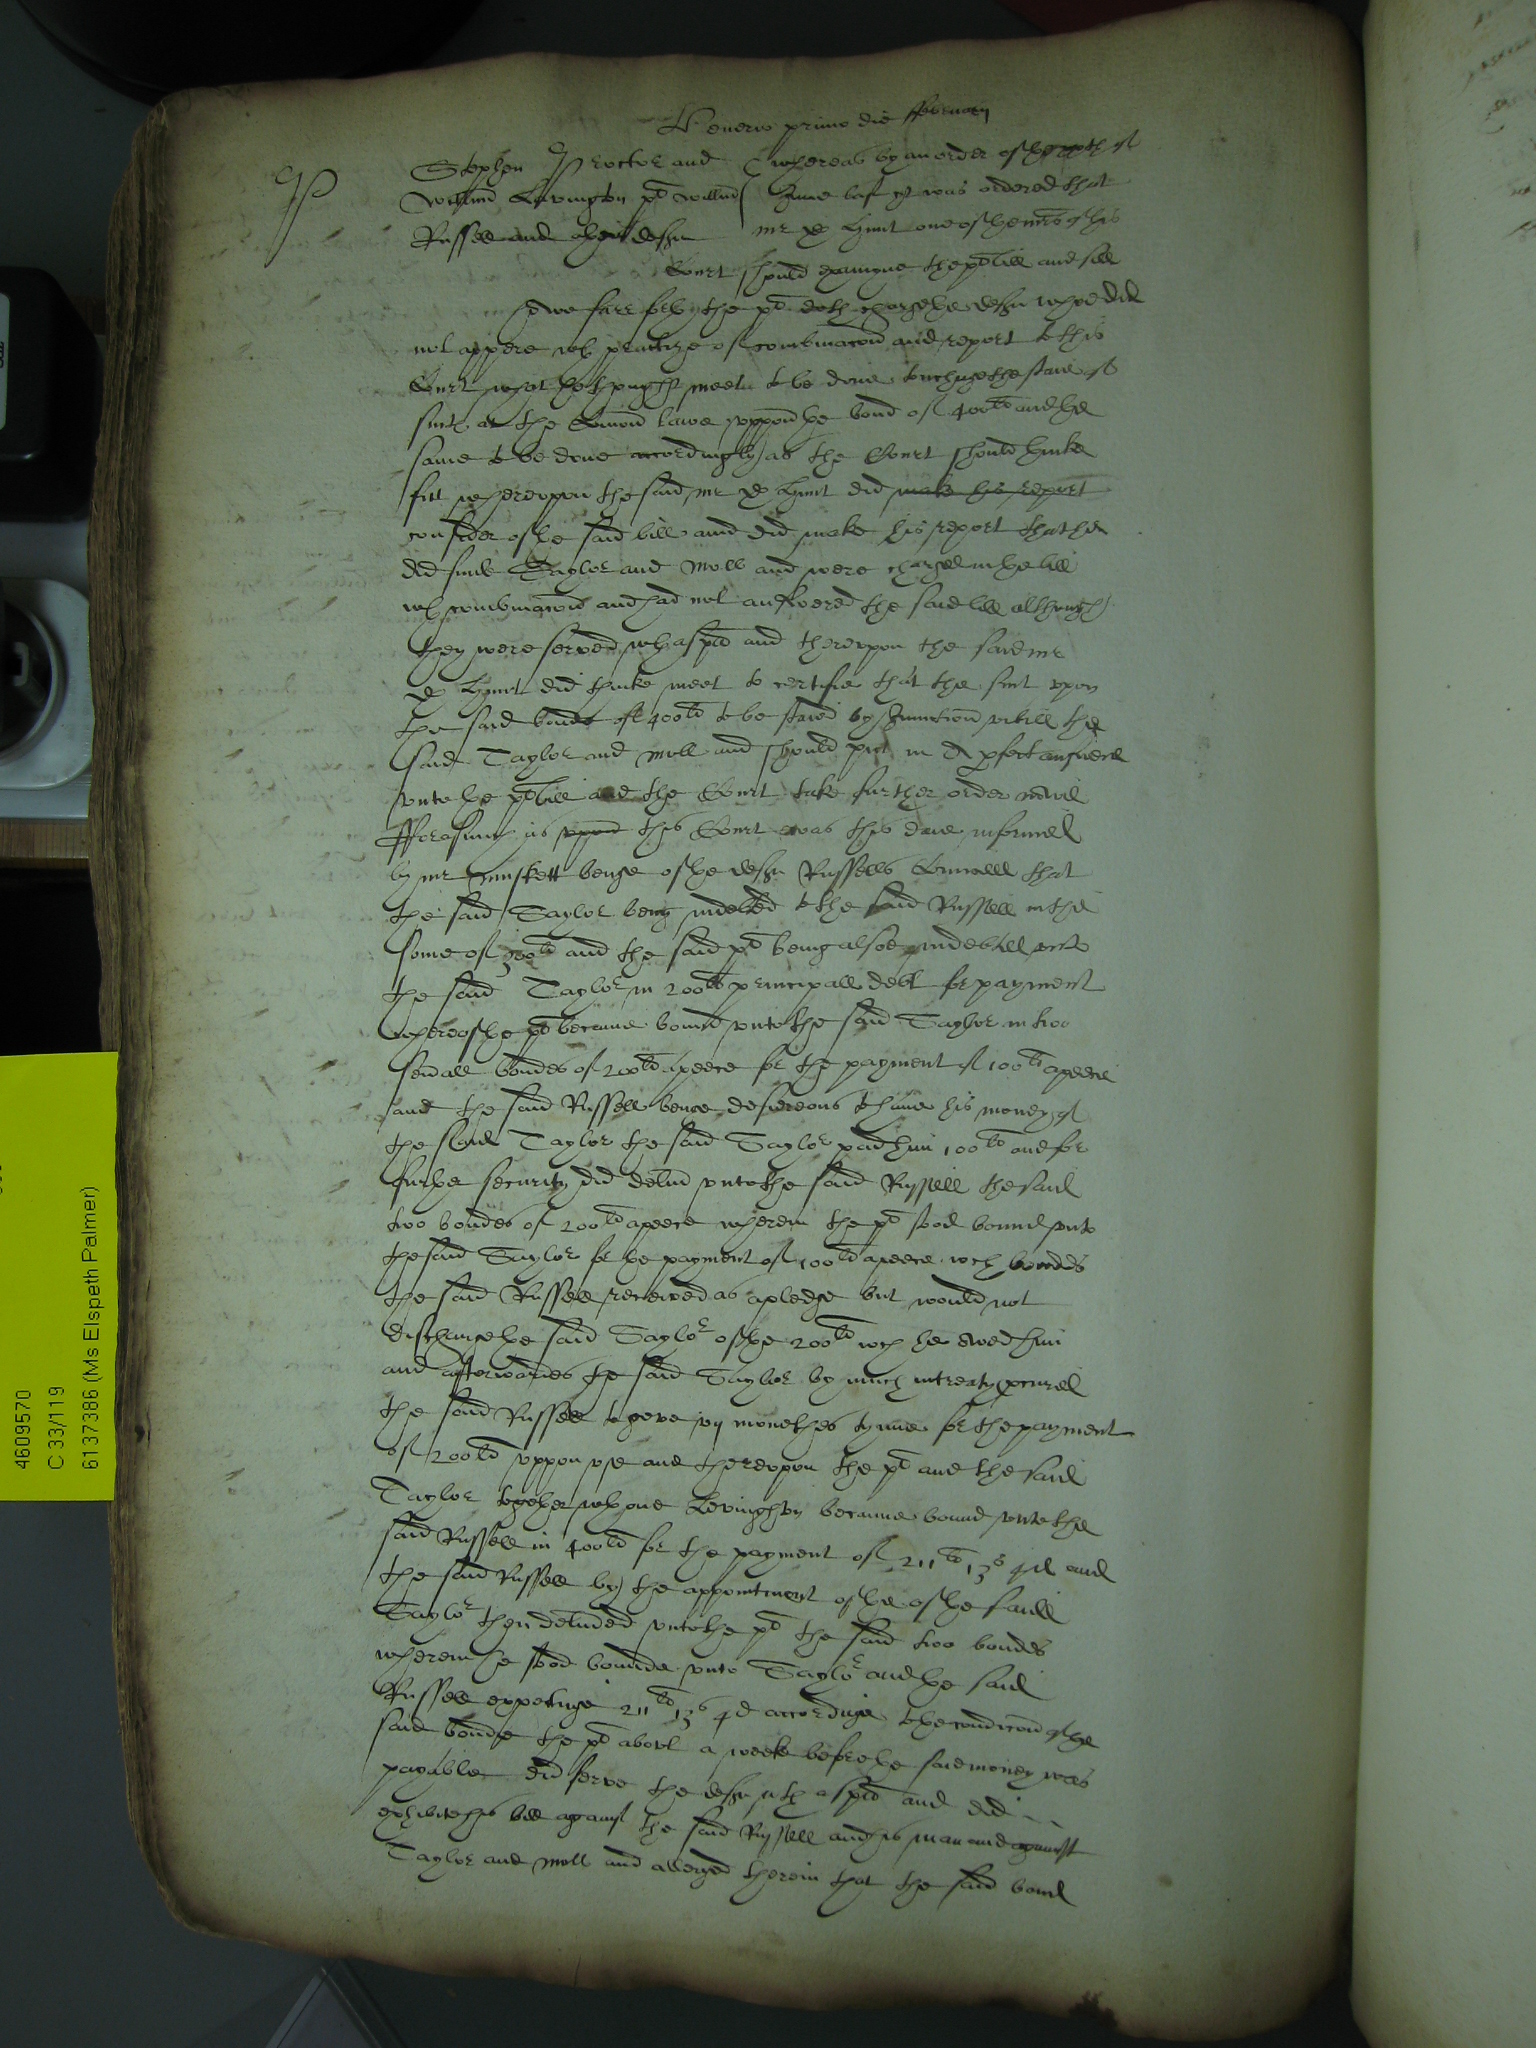 Veneris primo die ffebruarij
P
Stephen Proctor and
William Levington plt William
Russell and others deftes
whereas by an order of the xxth of
June last yt was ordered that
mr D Hunt one of the mrs of this
Court should examyne the plt bill and see
howe farr forth the plt doth charge the deftes whoe did
not appere wth practize of combinacon and report to this
Court what he thought meete to be done touchinge the staie of
suite at the Comon lawe uppon the bond of 400li and the
same to be done accordingly as the Court should thinke
fitt whereuppon the said mr D Hunt did make his report
consider of the said bill and did make his report that he
did finde Taylor and Moll and were charged in the bill
wth combinacon and had not answered the said bill although
they were served wth a spa and thereupon the said mr
D Hunt did thinke meet to certifie that the suit upon
the said bonde of 400li to be staied by Iniunction untill the
said Taylor and Moll and should put in A perfect answere
unto the plt bill and the Court take further order
fforasmuch as uppon this Court was this daie informed
by mr beinge of the deft Russells Councell that
the said Taylor being indebted to the said Russell in the
some of 300li and the said plt being alsoe indebted unto
the said Taylor in 200li principall debt for payment
whereof the plt became bound unto the said Taylor in two
severall bondes of 200li apeece for the payment of 100li apeece
and the said Russell beinge desiereous to have his money of
the said Taylor the said Taylor paid him 100li and for
further security did deliver unto the said Russell the said
two bondes of 200li apeece wherein the plt stood bound unto
the said Taylor for the payment of 100li apeece wch bondes
the said Russell received as a pledge but would not
discharge the said Taylor of the 200li wch he owed him
and afterwardes the said Taylor by much intreaty procured
the said Russell to geve vij monethes tyme for the payment
of 200li uppon use and thereupon the plt and the said
Taylor together wth one Levington became bound unto the
said Russell in 400li for the payment of 211li 13s 4d and
the said Russell by the appointment of the of the saide
Taylor then delivered unto the plt the said two bondes
wherein he stood bounde unto Taylor and the said
Russell expectinge 211li 13s 4d accordinge to the condicon of the
said bonde the plt about a weeke before the said money was
payable did serve the deft with a spa and did
exhibite his bill against the said Russell and his man and against
Taylor and Moll and alledged therein that the said bond
4609570
C 33/119
6137386 (Ms Elspeth Palmer)